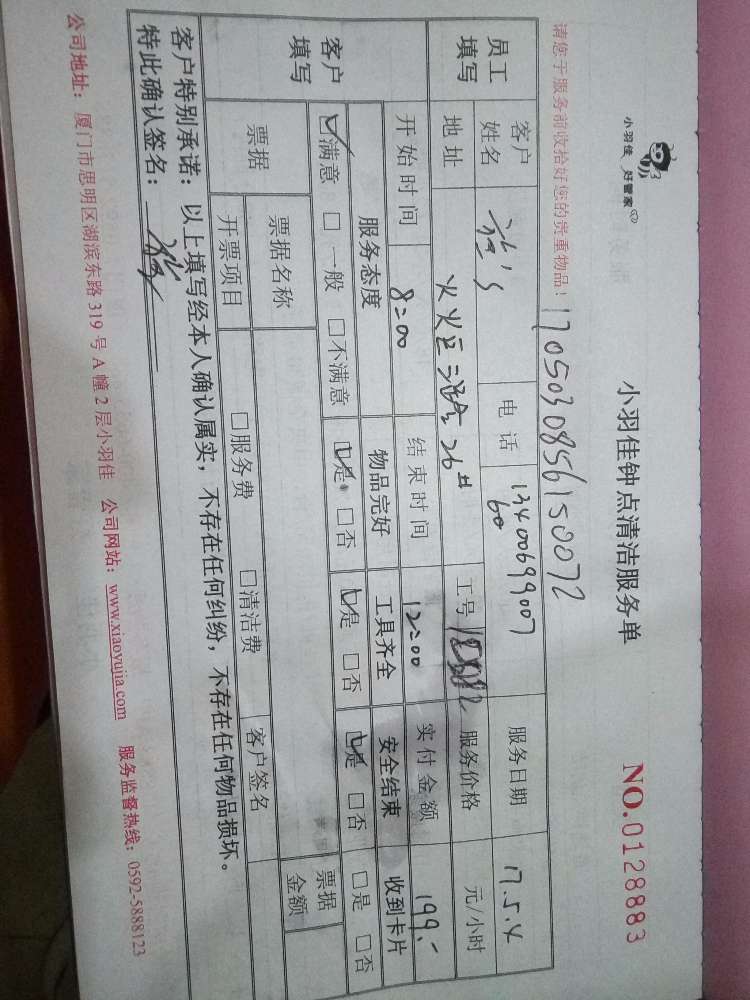 小羽佳 好管家
小羽佳钟点清洁服务单
NO.0128883
请您于服务前收拾好您的贵重物品！
170503085615 0072
员工填写
客户姓名
电话 13400699007
60
服务日期 17.5.4
地址
工号
服务价格 元/小时
开始时间 8:00 结束时间 12:00 实付金额 199.-
客户填写
服务态度 物品完好 工具齐全 安全结束 收到卡片
☑满意 □一般 □不满意 ☑是 □否 ☑是 □否 ☑是 □否 □是 □否
票据
票据名称 票据金额
开票项目 □服务费 □清洁费 客户签名
客户特别承诺：以上填写经本人确认属实，不存在任何纠纷，不存在任何物品损坏。
特此确认签名：
公司地址：厦门市思明区湖滨东路319号A幢2层小羽佳 公司网站：www.xiaoyujia.com 服务监督热线：0592-5888123